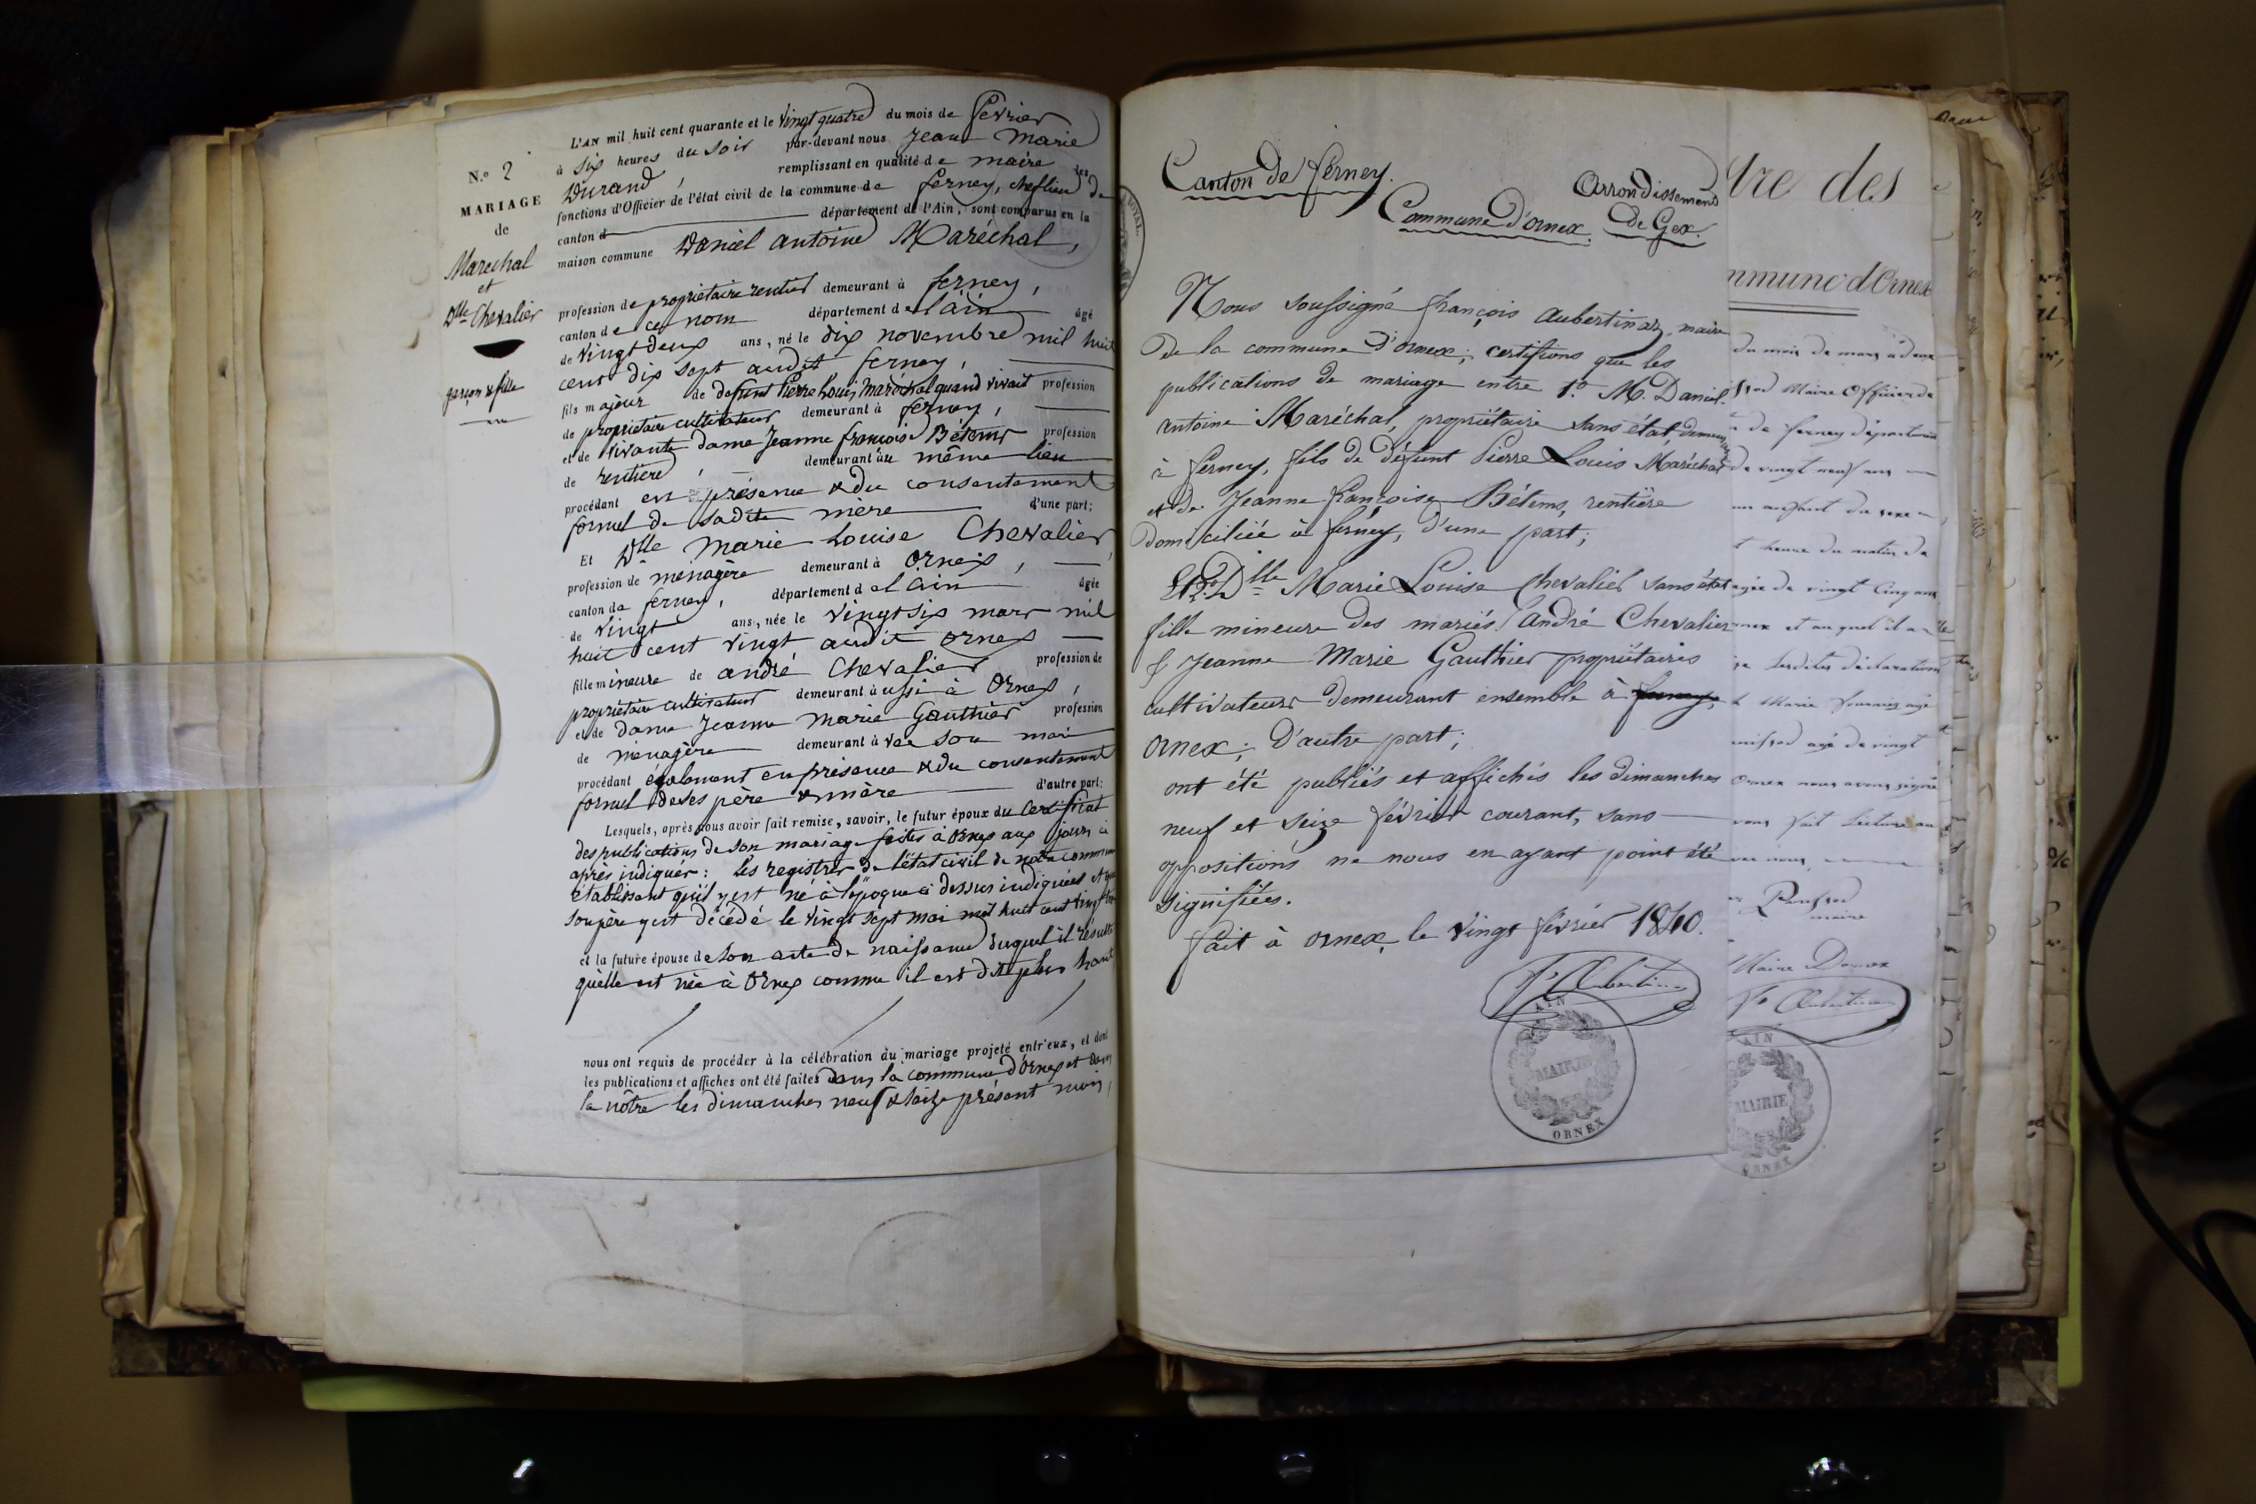 N.o 2
MARIAGE
de
Marechal
et
Dlle Chevalier
garçon & fille
L'AN mil huit cent quarante et le vingt quatre du mois de février
à six heures du soir par-devant nous Jean Marie
Durand, remplissant en qualité de maire les
fonctions d'Officier de l'état civil de la commune de ferney, cheflieu de
canton d département de l'Ain, sont comparus en la
maison commune Daniel antoine Maréchal,
profession de propriétaire rentier demeurant à ferney,
canton de ce nom département de l'ain âgé
de vingt deux ans, né le dix novembre mil huit
cent dix sept audit ferney,
fils majeur de défunt Pierre Louis Maréchal quand vivait profession
de propriétaire cultivateur demeurant à ferney,
et de vivante dame Jeanne françoise Bétems profession
de rentière, demeurant au même lieu
procédant en présence & du consentement
formel de sadite mère d'une part;
Et Dlle Marie Louise Chevalier,
profession de ménagère demeurant à Ornex,
canton de ferney, département d el'ain âgée
de vingt ans, née le vingt six mars mil
huit cent vingt audit Ornex
fille mineure de andré Chevalier profession de
propriétaire cultivateur demeurant aussi à Ornex,
et de dame Jeanne Marie Gauthier profession
de ménagère demeurant à vec son mari
procédant également en présence & du consentement
formel de ses père & mère d'autre part;
Lesquels, après nous avoir fait remise, savoir, le futur époux du Certificat
des publications de son mariage faites à Ornex aux jours ci
après indiqués: les registres de l'état civil de notre commune
établissant qu'il y est né à l'époque ci dessus indiquée et que
son père y est décédé le vingt sept mai mil huit cent vingt
et la future épouse de son acte de naissance duquel il résulte
qu'elle est née à Ornex comme il est dit plus haut
nous ont requis de procéder à la célébration du mariage projeté entr'eux, et dont
les publications et affiches ont été faites dans la commune d'Ornex et dans
la nôtre les dimanches neuf & seize présent mois,
Canton de ferney.
Arrondissement
de Gex.
Commune d'ornex.
Nous soussigné françois Aubertinaz, maire
de la commune d'ornex; certifions que les
publications de mariage entre 1.o M. Daniel
antoine Maréchal, propriétaire sans état, demeurant
à ferney, fils de défunt Pierre Louis Maréchal
et de Jeanne françoise Bétems, rentière
domiciliée à ferney, d'une part;
Et 2.o Dlle Marie Louise Chevalier sans état
fille mineure des mariés André Chevalier
& Jeanne Marie Gauthier propriétaires
cultivateurs demeurant ensemble à ferney,
Ornex; D'autre part;
ont été publiés et affichés les dimanches
neuf et seize février courant, sans
oppositions ne nous en ayant point été
signifiées.
fait à ornex le vingt février 1840.
fs Aubertinaz
AIN
MAIRIE
ORNEX
tre des
mmune d'Ornex
du mois de mars à deux
Maire Officier de
de ferney département
de vingt neuf ans
un enfant du sexe
heure du matin de
agée de vingt cinq ans
ornex et auquel il a
déclarations
Marie
agé de vingt
Ornex nous avons signé
avons fait lecture au
maire
Maire Dornex
fs Aubertinaz
AIN
MAIRIE
ORNEX